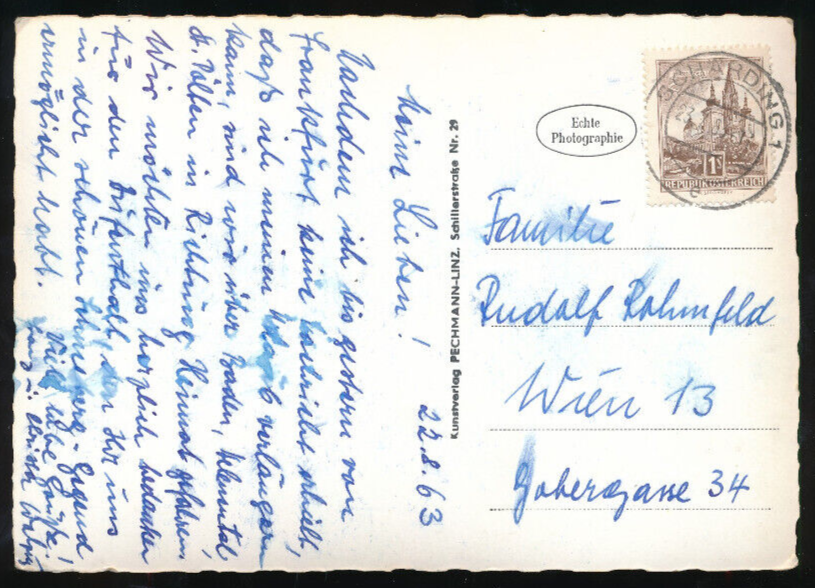 Meine Lieben! 22.8.63
Nachdem ich bis gestern von
Frankfurt keine Nachricht erhielt,
daß ich meinen Urlaub verlängern
kann, sind wir über Baden, Helenental
St. Pölten in Richtung Heimat gefahren.
Wir möchten uns herzlich bedanken
für den Aufenthalt, den Ihr uns
in der schönen Schneeberg-Gegend
ermöglicht habt. Viele liebe Grüße!
Kunstverlag PECHMANN-LINZ. Schillerstraße Nr. 29
Echte
Photographie
SCHÄRDING 1
1S
REPUBLIK ÖSTERREICH
Familie
Rudolf Rohmfeld
Wien 13
Gobergasse 34